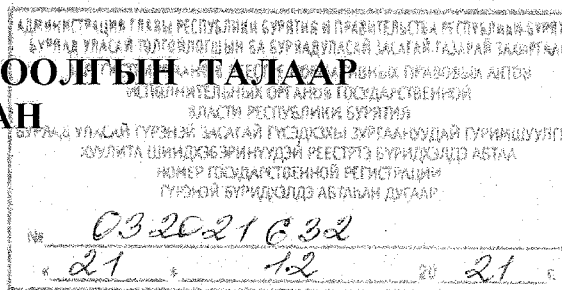 АДМИНИСТРАЦИЯ ГЛАВЫ РЕСПУБЛИКИ БУРЯТИЯ И ПРАВИТЕЛЬСТВА РЕСПУБЛИКИ БУРЯТИЯ
БУРЯАД УЛАСАЙ ТОЛГОЙЛОГШЫН БА БУРЯАД УЛАСАЙ ЗАСАГАЙ ГАЗАРАЙ ЗАХИРГААН
ООЛГЫН ТАЛААР
НОРМАТИВНЫХ ПРАВОВЫХ АКТОВ
ИСПОЛНИТЕЛЬНЫХ ОРГАНОВ ГОСУДАРСТВЕННОЙ
АН
ВЛАСТИ РЕСПУБЛИКИ БУРЯТИЯ
БУРЯАД УЛАСАЙ ГҮРЭНЭЙ ЗАСАГАЙ ГҮЙСЭДХЭХЫ ЗУРГААНУУДАЙ ГУРИМШУУЛГЫН
ХУУЛИТА ШИИДХЭБЭРИНҮҮДЭЙ РЕЕСТРТЭ БҮРИДХЭЛДЭ АБТАА
НОМЕР ГОСУДАРСТВЕННОЙ РЕГИСТРАЦИИ
ГҮРЭНЭЙ БҮРИДХЭЛДЭ АБТАҺАН ДУГААР
№ 032021632
« 21 » 12 20 21 г.